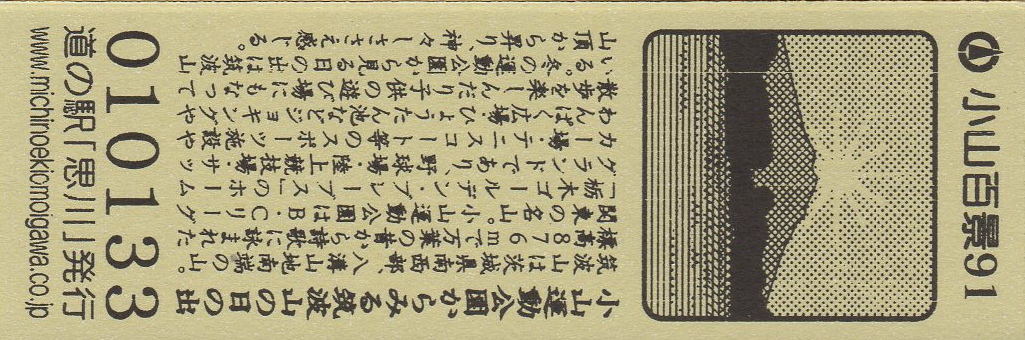 小山百景91
小山運動公園からみる筑波山の日の出
筑波山は茨城県南西部、八溝山地南端の山。
標高876mで万葉の昔から詩歌に詠まれた
関東の名山。小山運動公園はB・Cリーグ
「栃木ゴールデン・ブレーブス」のホーム
グランドであり、野球場・陸上競技場・サッ
カー場・テニスコート等のスポーツ施設や
わんぱく広場ひょうたん池などジョギングや
散歩を楽しんだり子供の遊び場にもなって
いる。冬の運動公園から見る日の出は筑波山
山頂から昇り、神々しささえ感じる。
010133
道の駅「思川」発行
www.michinoekiomoigawa.co.jp